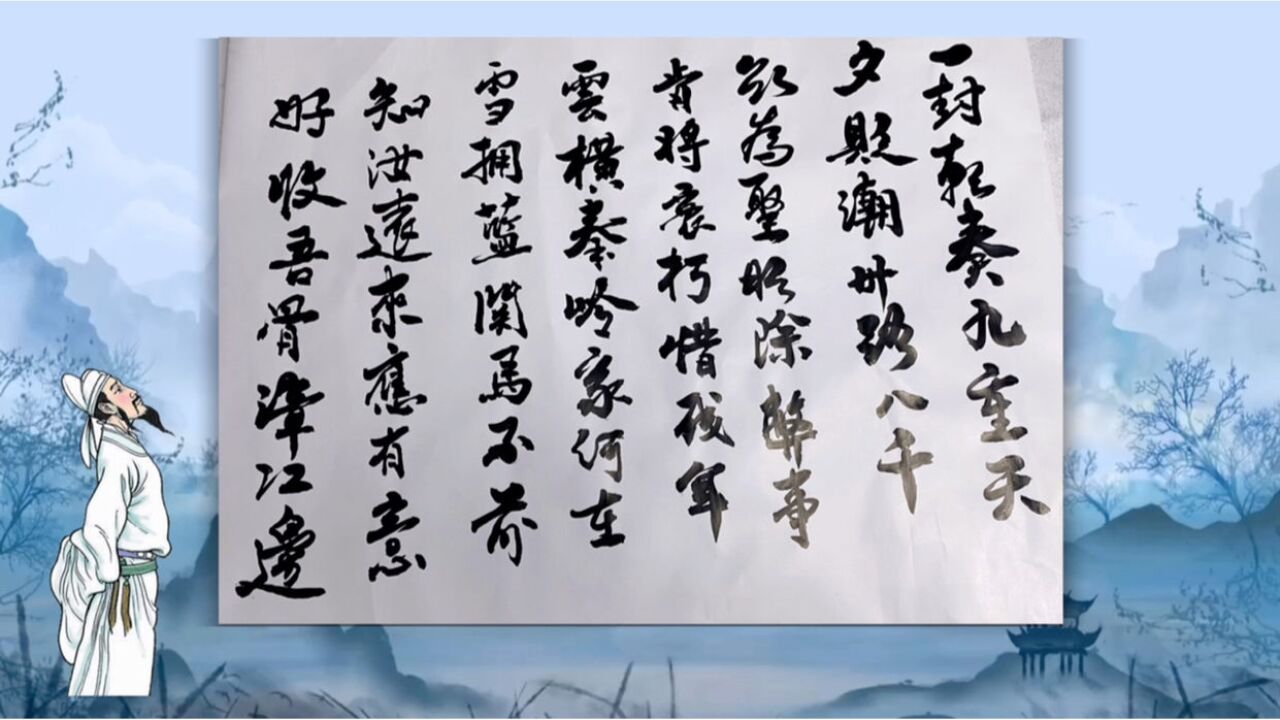 一封朝奏九重天
夕貶潮州路八千
欲為聖明除弊事
肯將衰朽惜残年
雲橫秦岭家何在
雪拥藍關馬不前
知汝遠來應有意
好收吾骨漳江邊